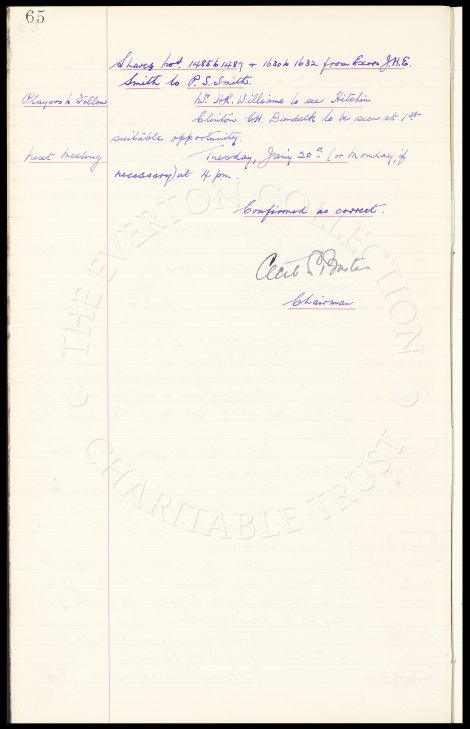 65
Shares Nos. 1485 to 1487 + 1630 to 1632 from Exors J.H.E.
Smith to P.S. Smith.
Players to Follow
Mr. H.R. Williams to see Hitchin
Clinton C.H. Dundalk to be seen at 1st
suitable opportunity.
Next Meeting
Tuesday, Jany 20th (or Monday, if
necessary) at 4 pm.
Confirmed as correct.
Cecil S Baxter
Chairman
THE EVERTON COLLECTION
CHARITABLE TRUST